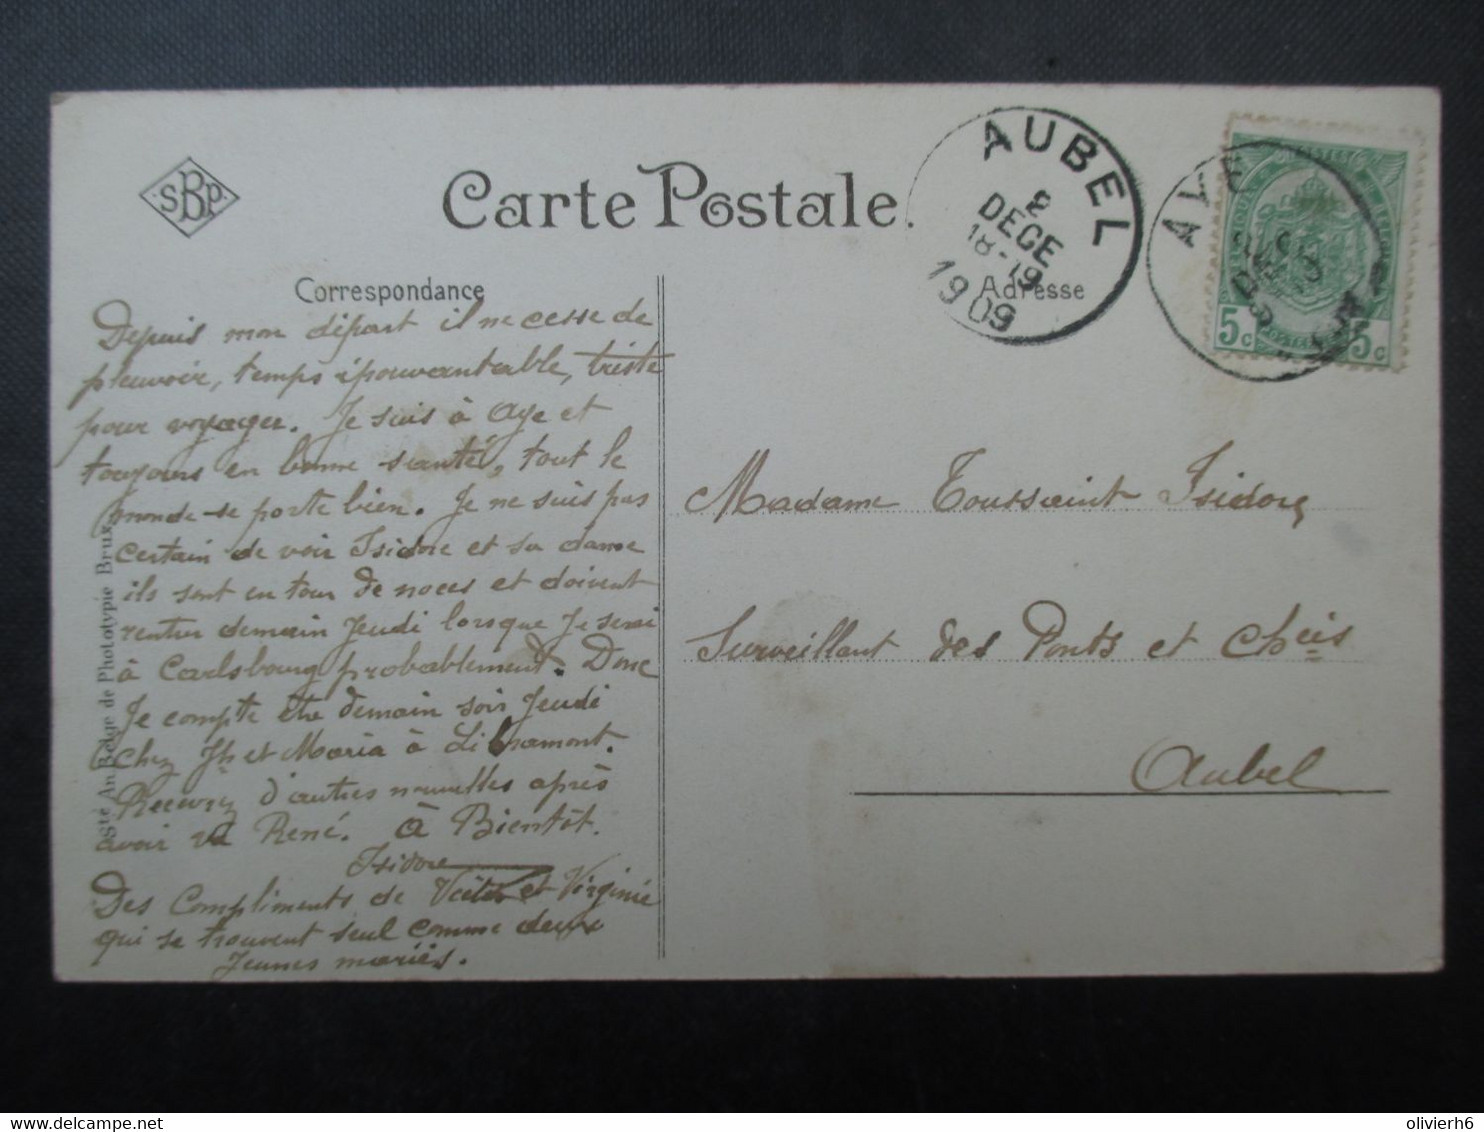 SBP
Carte Postale.
AUBEL
2
DECE
18-19
1909
AYE
5c
5c
Correspondance
Adresse
Depuis mon départ il ne cesse de
pleuvoir, temps épouvantable, triste
pour voyager. Je suis à Aye et
toujours en bonne santé, tout le
monde se porte bien. Je ne suis pas
certain de voir Isidore et sa dame
ils sont en tour de noces et doivent
rentrer demain Jeudi lorsque Je serai
à Carlsbourg probablement. Donc
Je compte être demain soir Jeudi
chez Jh et Maria à Libramont.
Recevrez d'autres nouvelles après
avoir vu René. à Bientôt.
Isidore
Des Compliments de et Virginie
qui se trouvent seul comme deux
Jeunes mariés.
Madame Toussaint Isidore
Surveillant des Ponts et Chées
Aubel
Sté An. Belge de Phototypie Brux.
olivierh6